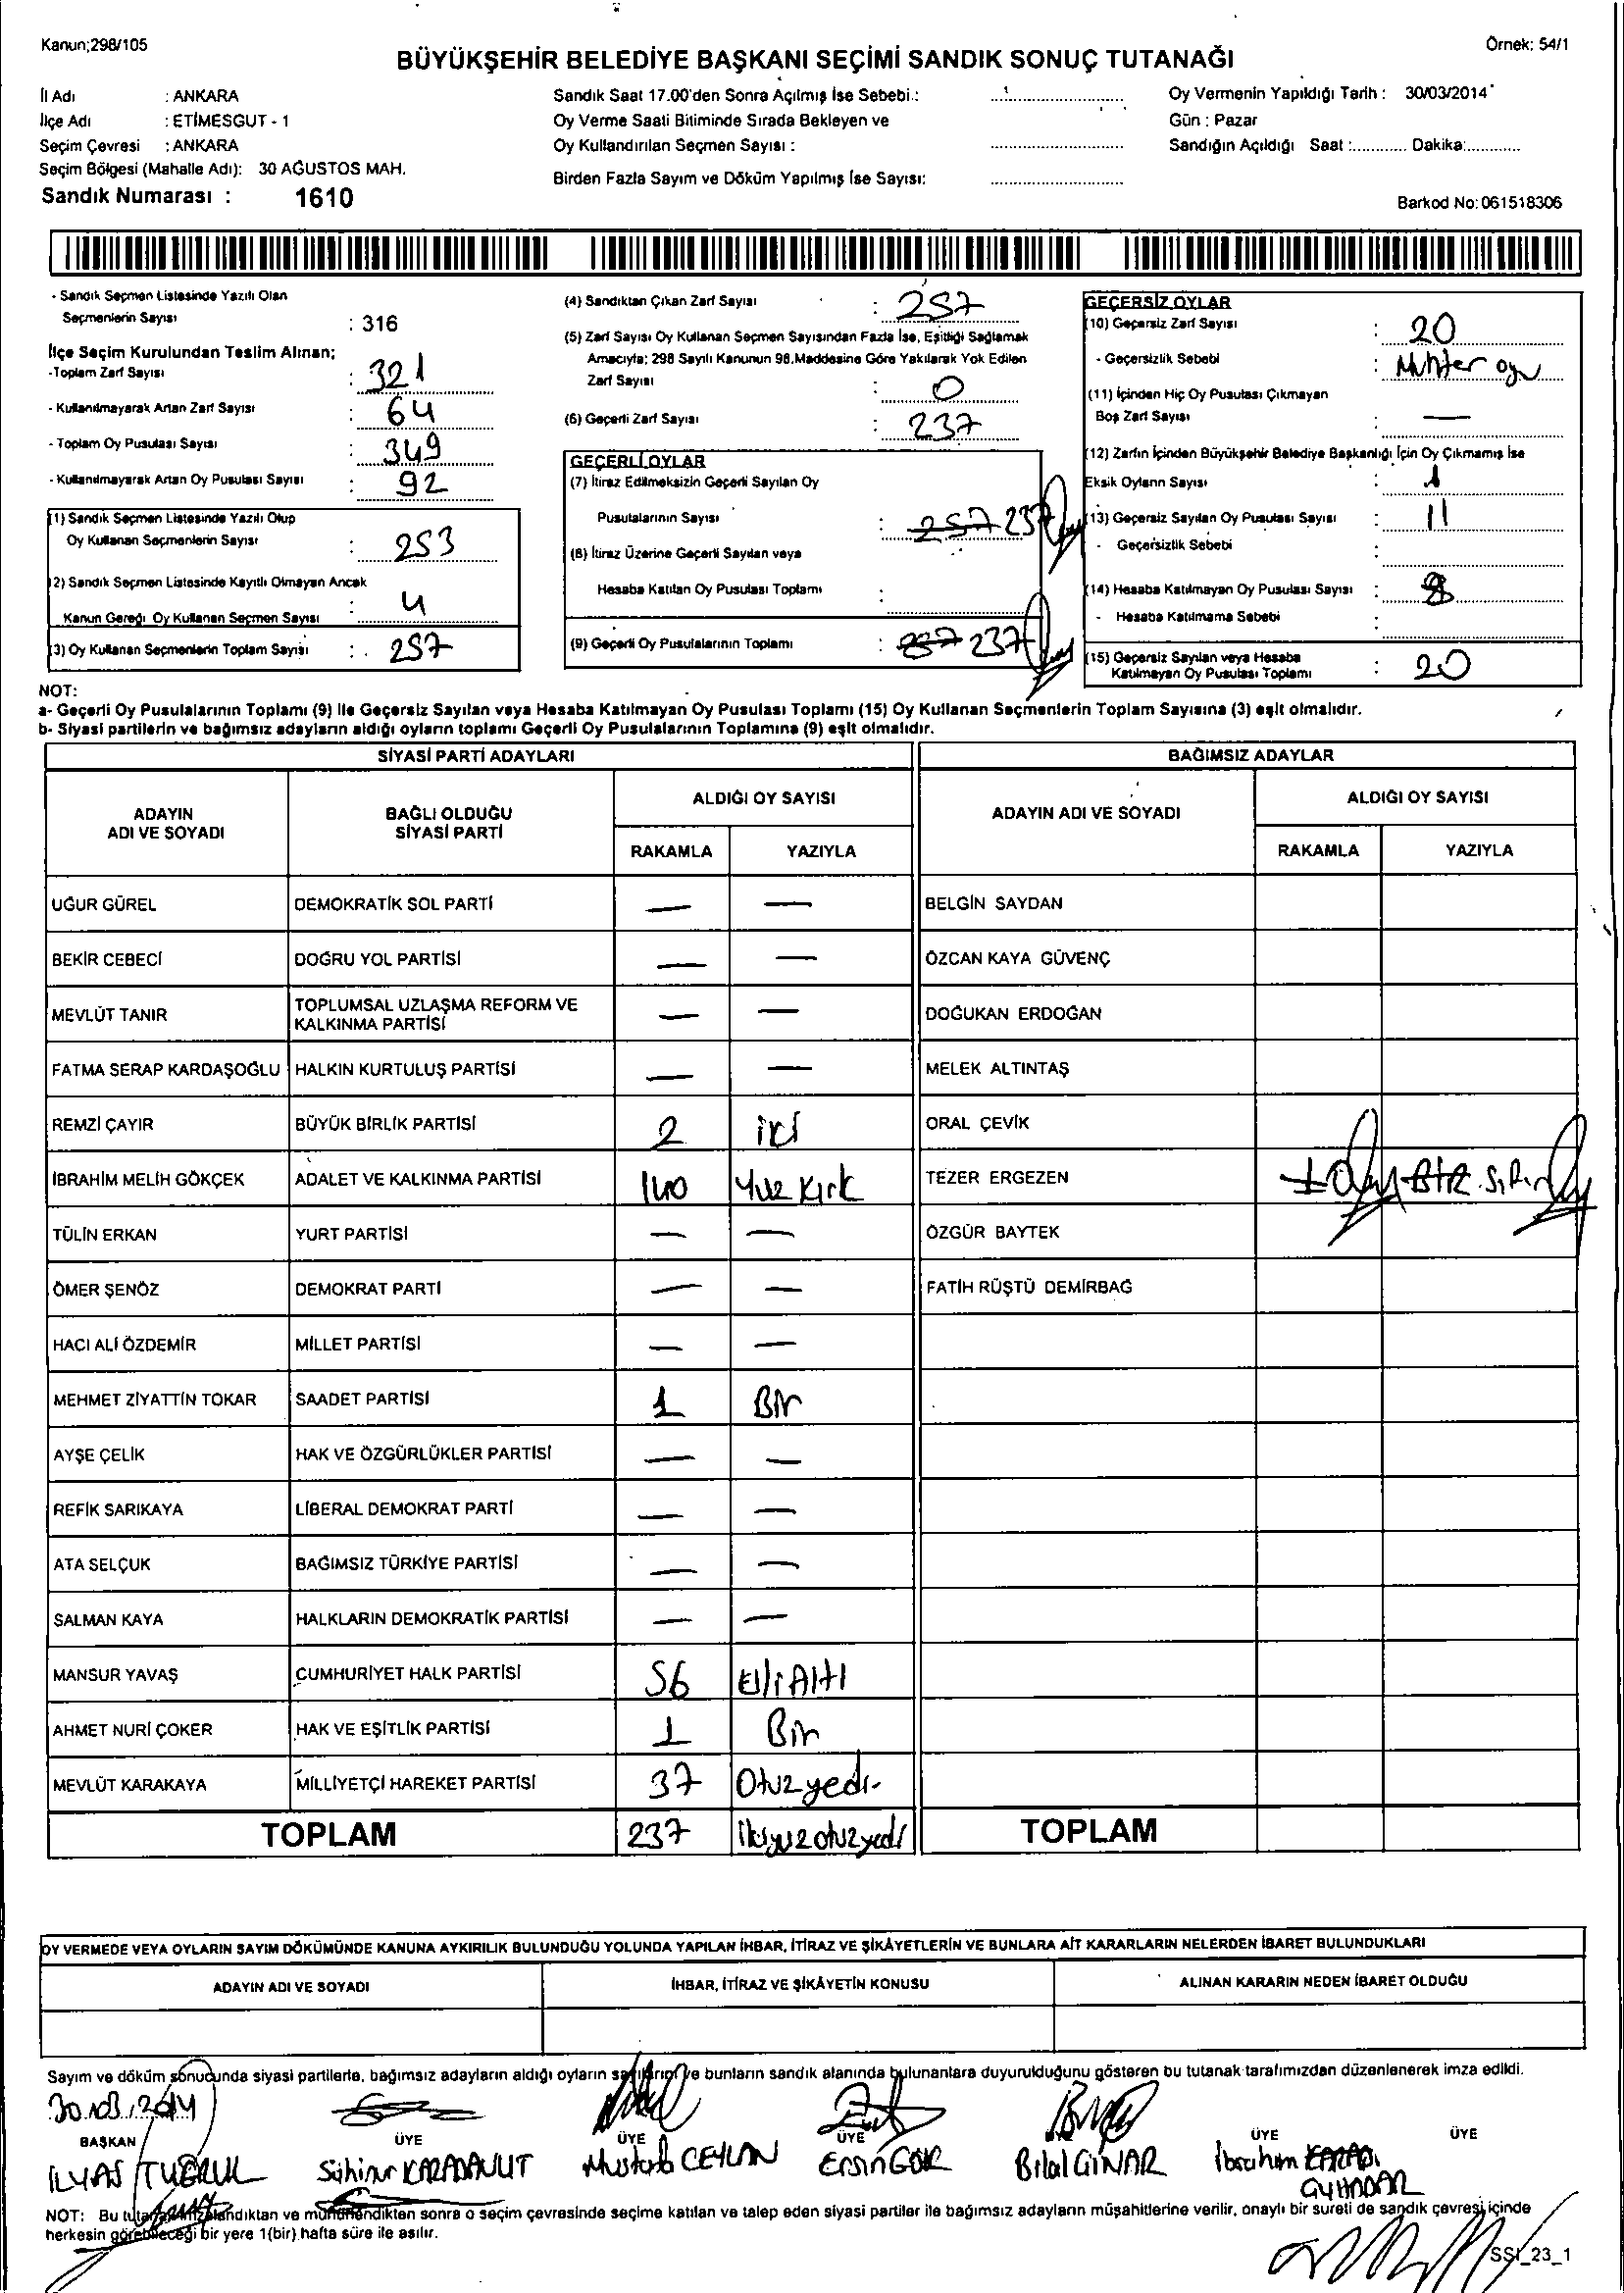 Kanun;298/105
Örnek: 54/1
BÜYÜKŞEHİR BELEDİYE BAŞKANI SEÇİMİ SANDIK SONUÇ TUTANAĞI
İl Adı : ANKARA
İlçe Adı : ETİMESGUT - 1
Seçim Çevresi : ANKARA
Seçim Bölgesi (Mahalle Adı): 30 AĞUSTOS MAH.
Sandık Numarası : 1610
Sandık Saat 17.00'den Sonra Açılmış İse Sebebi :
Oy Verme Saati Bitiminde Sırada Bekleyen ve
Oy Kullandırılan Seçmen Sayısı :
Birden Fazla Sayım ve Döküm Yapılmış İse Sayısı:
Oy Vermenin Yapıldığı Tarih : 30/03/2014
Gün : Pazar
Sandığın Açıldığı Saat :............ Dakika:............
Barkod No: 061518306
- Sandık Seçmen Listesinde Yazılı Olan
Seçmenlerin Sayısı : 316
İlçe Seçim Kurulundan Teslim Alınan;
-Toplam Zarf Sayısı : 321
- Kullanılmayarak Artan Zarf Sayısı : 64
- Toplam Oy Pusulası Sayısı : 349
- Kullanılmayarak Artan Oy Pusulası Sayısı : 92
(1) Sandık Seçmen Listesinde Yazılı Olup
Oy Kullanan Seçmenlerin Sayısı : 253
(2) Sandık Seçmen Listesinde Kayıtlı Olmayan Ancak
Kanun Gereği Oy Kullanan Seçmen Sayısı : 4
(3) Oy Kullanan Seçmenlerin Toplam Sayısı : 257
(4) Sandıktan Çıkan Zarf Sayısı : 257
(5) Zarf Sayısı Oy Kullanan Seçmen Sayısından Fazla İse, Eşitliği Sağlamak
Amacıyla; 298 Sayılı Kanunun 98.Maddesine Göre Yakılarak Yok Edilen
Zarf Sayısı : 0
(6) Geçerli Zarf Sayısı : 237
GEÇERLİ OYLAR
(7) İtiraz Edilmeksizin Geçerli Sayılan Oy
Pusulalarının Sayısı : 257 237
(8) İtiraz Üzerine Geçerli Sayılan veya
Hesaba Katılan Oy Pusulası Toplamı :
(9) Geçerli Oy Pusulalarının Toplamı : 257 237
GEÇERSİZ OYLAR
(10) Geçersiz Zarf Sayısı : 20
- Geçersizlik Sebebi : Muhter oyu
(11) İçinden Hiç Oy Pusulası Çıkmayan
Boş Zarf Sayısı : —
(12) Zarfın İçinden Büyükşehir Belediye Başkanlığı İçin Oy Çıkmamış İse
Eksik Oyların Sayısı : 1
(13) Geçersiz Sayılan Oy Pusulası Sayısı : 11
- Geçersizlik Sebebi :
(14) Hesaba Katılmayan Oy Pusulası Sayısı : 8
- Hesaba Katılmama Sebebi :
(15) Geçersiz Sayılan veya Hesaba
Katılmayan Oy Pusulası Toplamı : 20
NOT:
a- Geçerli Oy Pusulalarının Toplamı (9) ile Geçersiz Sayılan veya Hesaba Katılmayan Oy Pusulası Toplamı (15) Oy Kullanan Seçmenlerin Toplam Sayısına (3) eşit olmalıdır.
b- Siyasi partilerin ve bağımsız adayların aldığı oyların toplamı Geçerli Oy Pusulalarının Toplamına (9) eşit olmalıdır.
SİYASİ PARTİ ADAYLARI
ADAYIN ADI VE SOYADI BAĞLI OLDUĞU SİYASİ PARTİ ALDIĞI OY SAYISI
RAKAMLA YAZIYLA
UĞUR GÜREL DEMOKRATİK SOL PARTİ — —
BEKİR CEBECİ DOĞRU YOL PARTİSİ — —
MEVLÜT TANIR TOPLUMSAL UZLAŞMA REFORM VE KALKINMA PARTİSİ — —
FATMA SERAP KARDAŞOĞLU HALKIN KURTULUŞ PARTİSİ — —
REMZİ ÇAYIR BÜYÜK BİRLİK PARTİSİ 2 iki
İBRAHİM MELİH GÖKÇEK ADALET VE KALKINMA PARTİSİ 140 Yüz Kırk
TÜLİN ERKAN YURT PARTİSİ — —
ÖMER ŞENÖZ DEMOKRAT PARTİ — —
HACI ALİ ÖZDEMİR MİLLET PARTİSİ — —
MEHMET ZİYATTİN TOKAR SAADET PARTİSİ 1 Bir
AYŞE ÇELİK HAK VE ÖZGÜRLÜKLER PARTİSİ — —
REFİK SARIKAYA LİBERAL DEMOKRAT PARTİ — —
ATA SELÇUK BAĞIMSIZ TÜRKİYE PARTİSİ — —
SALMAN KAYA HALKLARIN DEMOKRATİK PARTİSİ — —
MANSUR YAVAŞ CUMHURİYET HALK PARTİSİ 56 Elli Altı
AHMET NURİ ÇOKER HAK VE EŞİTLİK PARTİSİ 1 Bir
MEVLÜT KARAKAYA MİLLİYETÇİ HAREKET PARTİSİ 37 Otuzyedi
TOPLAM 237 ikiyüzotuzyedi
BAĞIMSIZ ADAYLAR
ADAYIN ADI VE SOYADI ALDIĞI OY SAYISI
RAKAMLA YAZIYLA
BELGİN SAYDAN
ÖZCAN KAYA GÜVENÇ
DOĞUKAN ERDOĞAN
MELEK ALTINTAŞ
ORAL ÇEVİK
TEZER ERGEZEN 1 0 BİR Sıfır
ÖZGÜR BAYTEK
FATİH RÜŞTÜ DEMİRBAĞ
TOPLAM
OY VERMEDE VEYA OYLARIN SAYIM DÖKÜMÜNDE KANUNA AYKIRILIK BULUNDUĞU YOLUNDA YAPILAN İHBAR, İTİRAZ VE ŞİKÂYETLERİN VE BUNLARA AİT KARARLARIN NELERDEN İBARET BULUNDUKLARI
ADAYIN ADI VE SOYADI İHBAR, İTİRAZ VE ŞİKÂYETİN KONUSU ALINAN KARARIN NEDEN İBARET OLDUĞU
Sayım ve döküm sonucunda siyasi partilerle, bağımsız adayların aldığı oyların sayılarını ve bunların sandık alanında bulunanlara duyurulduğunu gösteren bu tutanak tarafımızdan düzenlenerek imza edildi.
30.03.2014
BAŞKAN ÜYE ÜYE ÜYE ÜYE ÜYE ÜYE
İLYAS TUĞRUL Sühinur KARADAVUT Mustafa CEYLAN Ersin GÖR Bilal GÜNAR İbrahim
NOT: Bu tutanak imzalandıktan ve mühürlendikten sonra o seçim çevresinde seçime katılan ve talep eden siyasi partiler ile bağımsız adayların müşahitlerine verilir, onaylı bir sureti de sandık çevresi içinde
herkesin görebileceği bir yere 1(bir) hafta süre ile asılır.
SSI_23_1